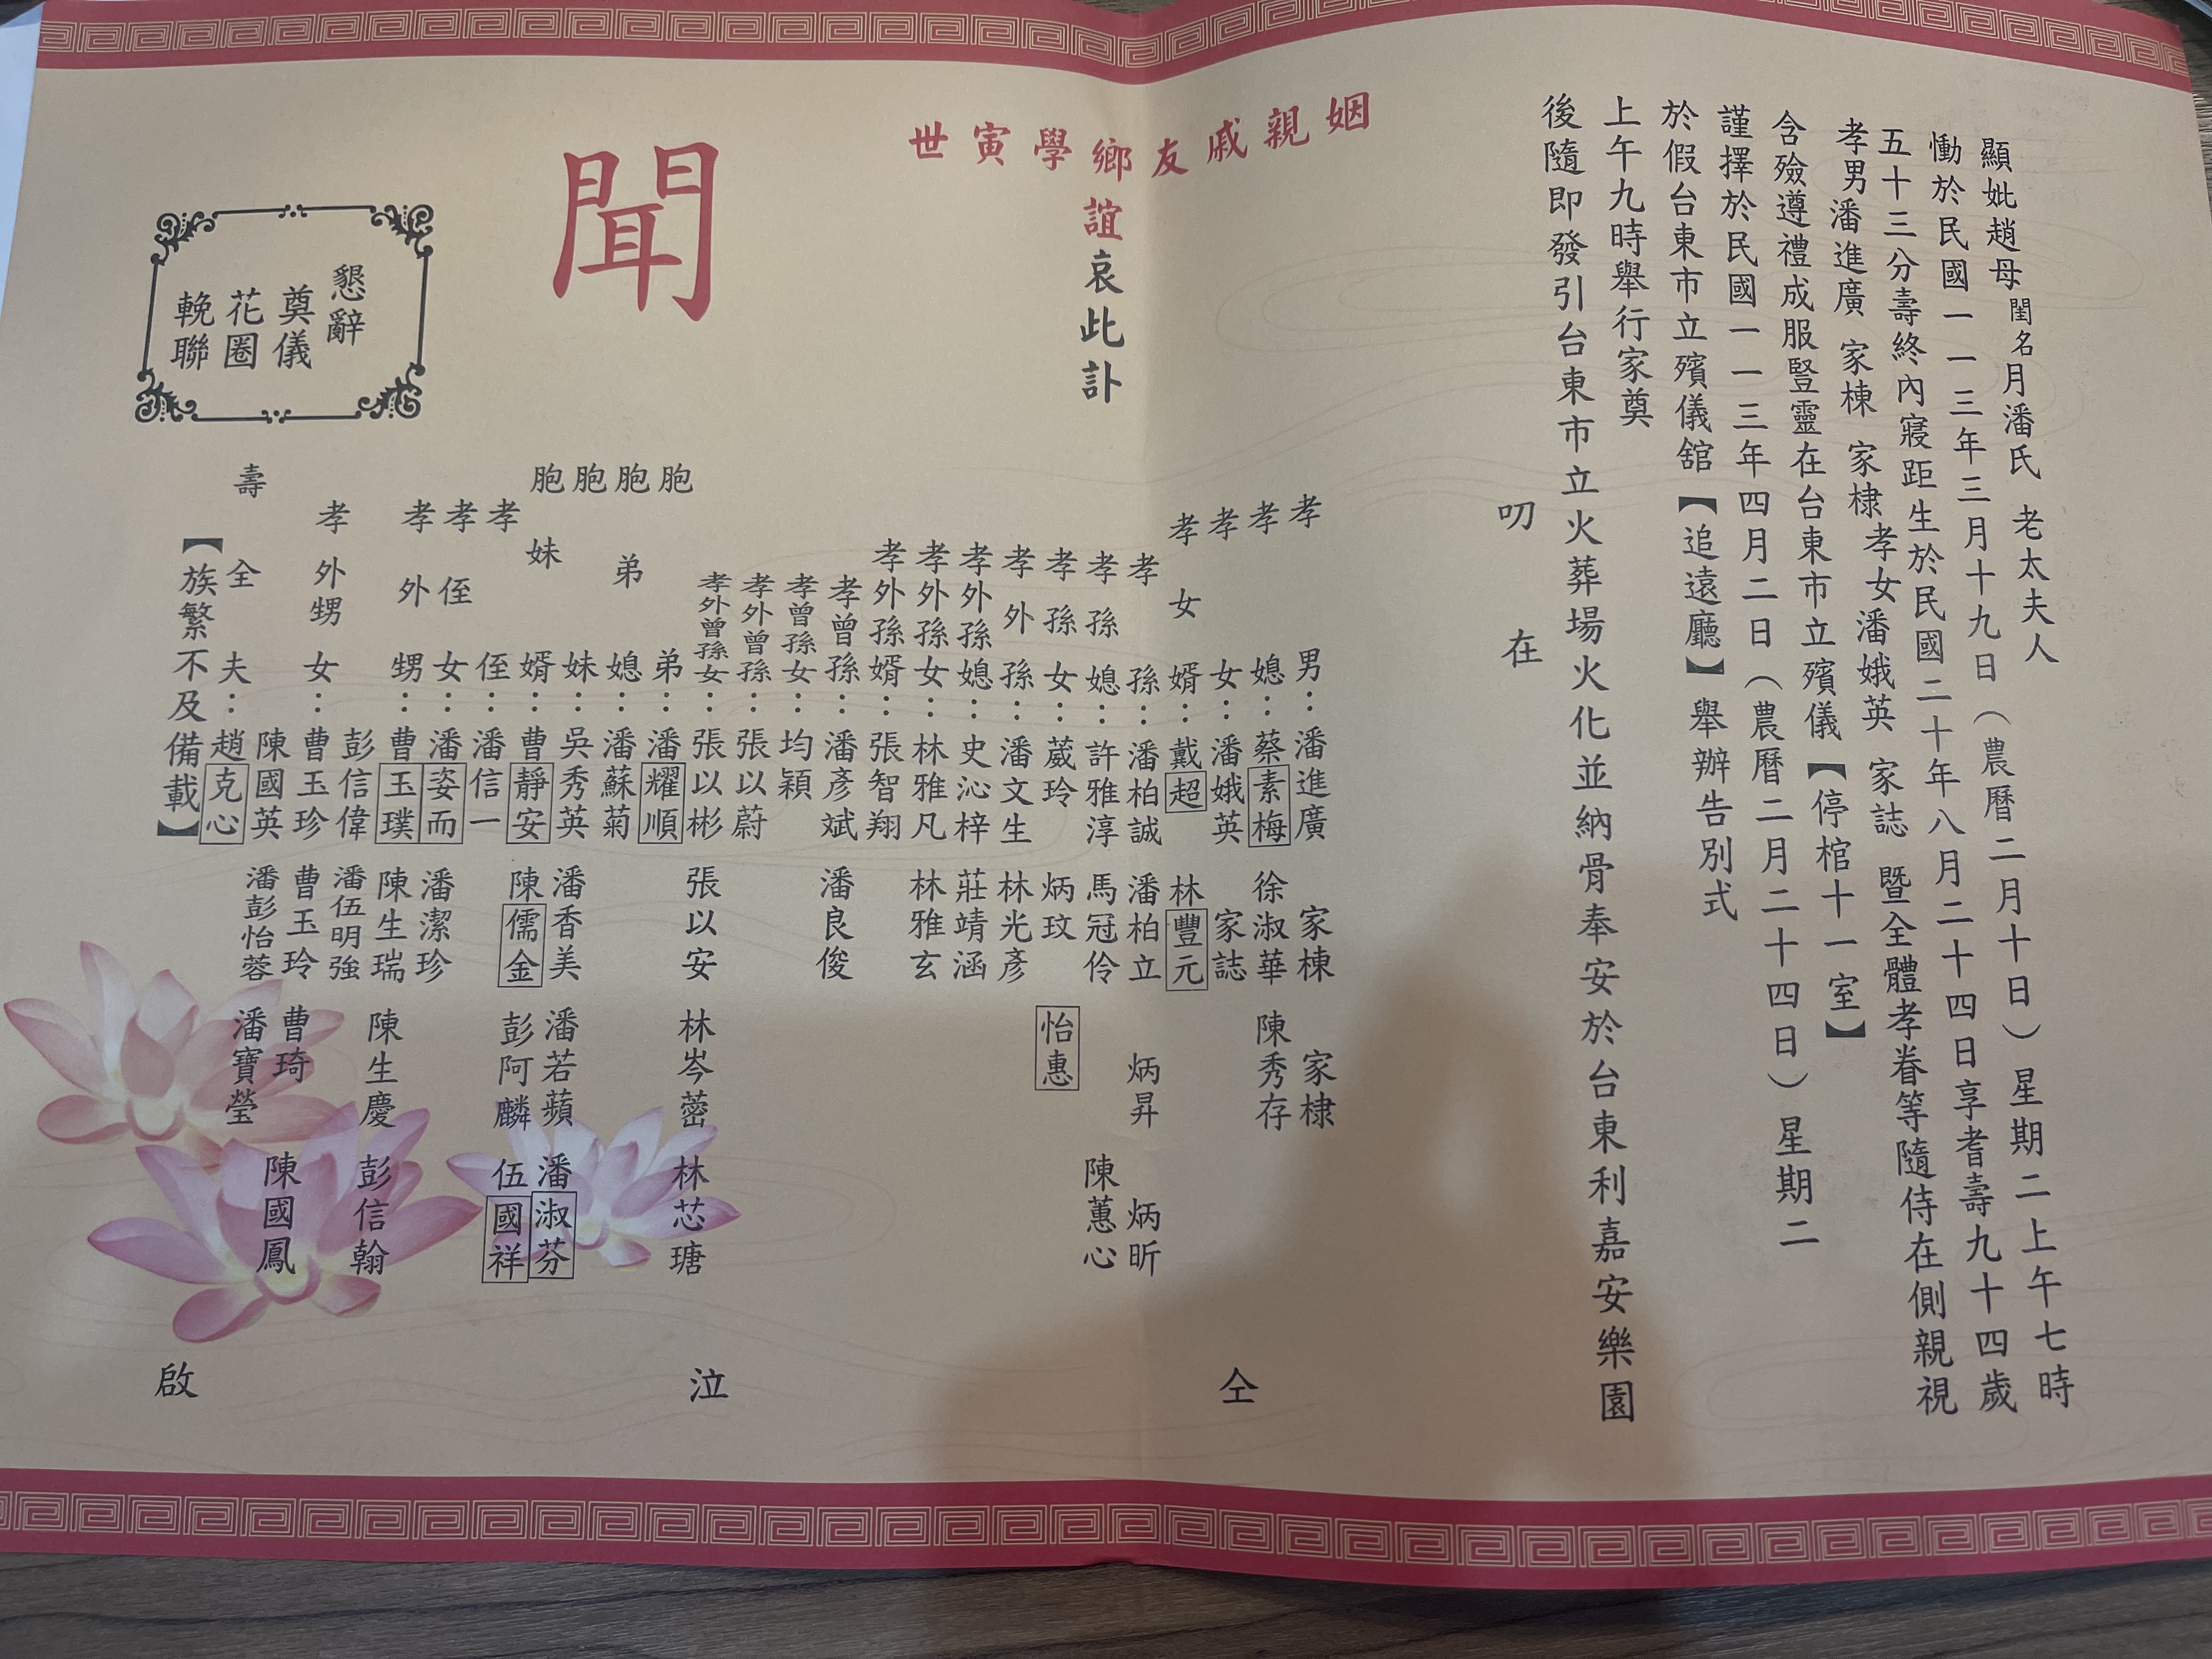 顯妣趙母閨名月潘氏 老太夫人
慟於民國一一三年三月十九日（農曆二月十日）星期二上午七時
五十三分壽終內寢距生於民國二十年八月二十四日享耆壽九十四歲
孝男潘進廣 家棟 家棣 孝女潘娥英 家誌 暨全體孝眷等隨侍在側親視
含殮遵禮成服豎靈在台東市立殯儀【停棺十一室】
謹擇於民國一一三年四月二日（農曆二月二十四日）星期二
於假台東市立殯儀舘【追遠廳】舉辦告別式
上午九時舉行家奠
後隨即發引台東市立火葬場火化並納骨奉安於台東利嘉安樂園
叨在
姻親戚友鄉學寅世
誼哀此訃
聞
孝男：潘進廣 家棟 家棣
孝媳：蔡素梅 徐淑華 陳秀存
孝女：潘娥英 家誌
孝女婿：戴超 林豐元
孝孫：潘柏誠 潘柏立 炳昇 炳昕
孝孫媳：許雅淳 馬冠伶 陳蕙心
孝孫女：葳玲 炳玟 怡惠
孝外孫：潘文生 林光彥
孝外孫媳：史沁梓 莊靖涵
孝外孫女：林雅凡 林雅玄
孝外孫婿：張智翔
孝曾孫：潘彥斌 潘良俊
孝曾孫女：均穎
孝外曾孫：張以蔚
孝外曾孫女：張以彬 張以安 林岑蓥 林芯瑭
胞弟：潘耀順
胞弟媳：潘蘇菊
胞妹：吳秀英 潘香美 潘若蘋 潘淑芬
胞妹婿：曹靜安 陳儒金 彭阿麟 伍國祥
孝侄：潘信一
孝侄女：潘姿而 潘潔珍
孝外甥：曹玉璞 陳生瑞 陳生慶 彭信翰
彭信偉 潘伍明強
孝外甥女：曹玉珍 曹玉玲 曹琦 陳國鳳
陳國英 潘彭怡蓉 潘寶瑩
壽全夫：趙克心
【族繁不及備載】
仝
泣
啟
懇辭
奠儀
花圈
輓聯